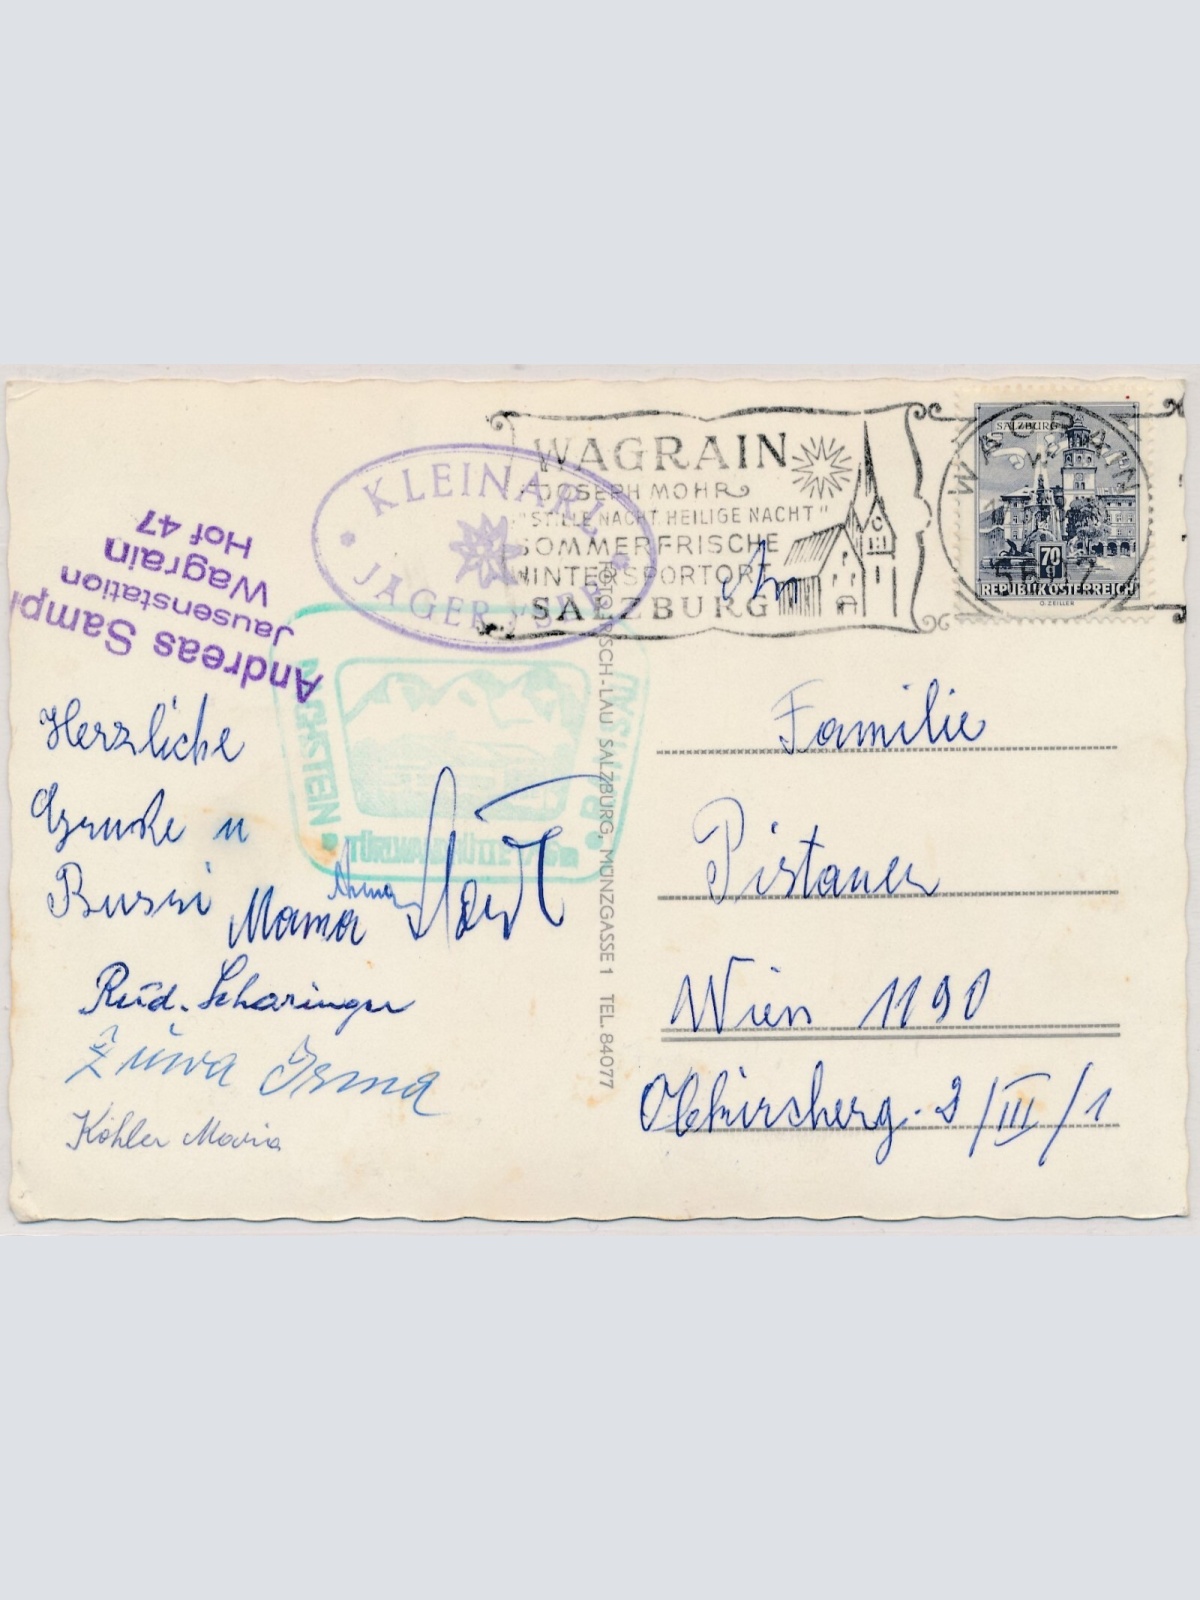 WAGRAIN
JOSEPH MOHR
"STILLE NACHT, HEILIGE NACHT"
SOMMERFRISCHE
WINTERSPORTORT
SALZBURG
WAGRAIN
SALZBURG
70 g
REPUBLIK ÖSTERREICH
O. ZEILLER
KLEINARL
JÄGERSEE
Andreas Samp
Jausenstation
Wagrain
Hof 47
DACHSTEIN
TÜRLWANDHÜTTE
SALZBURG, MÜNZGASSE 1 TEL. 84077
Herzliche
Grüße u
Bussi Mama
Rud. Scharinger
Irma
Köhler Maria
Familie
Pistauer
Wien 1190
2/III/1